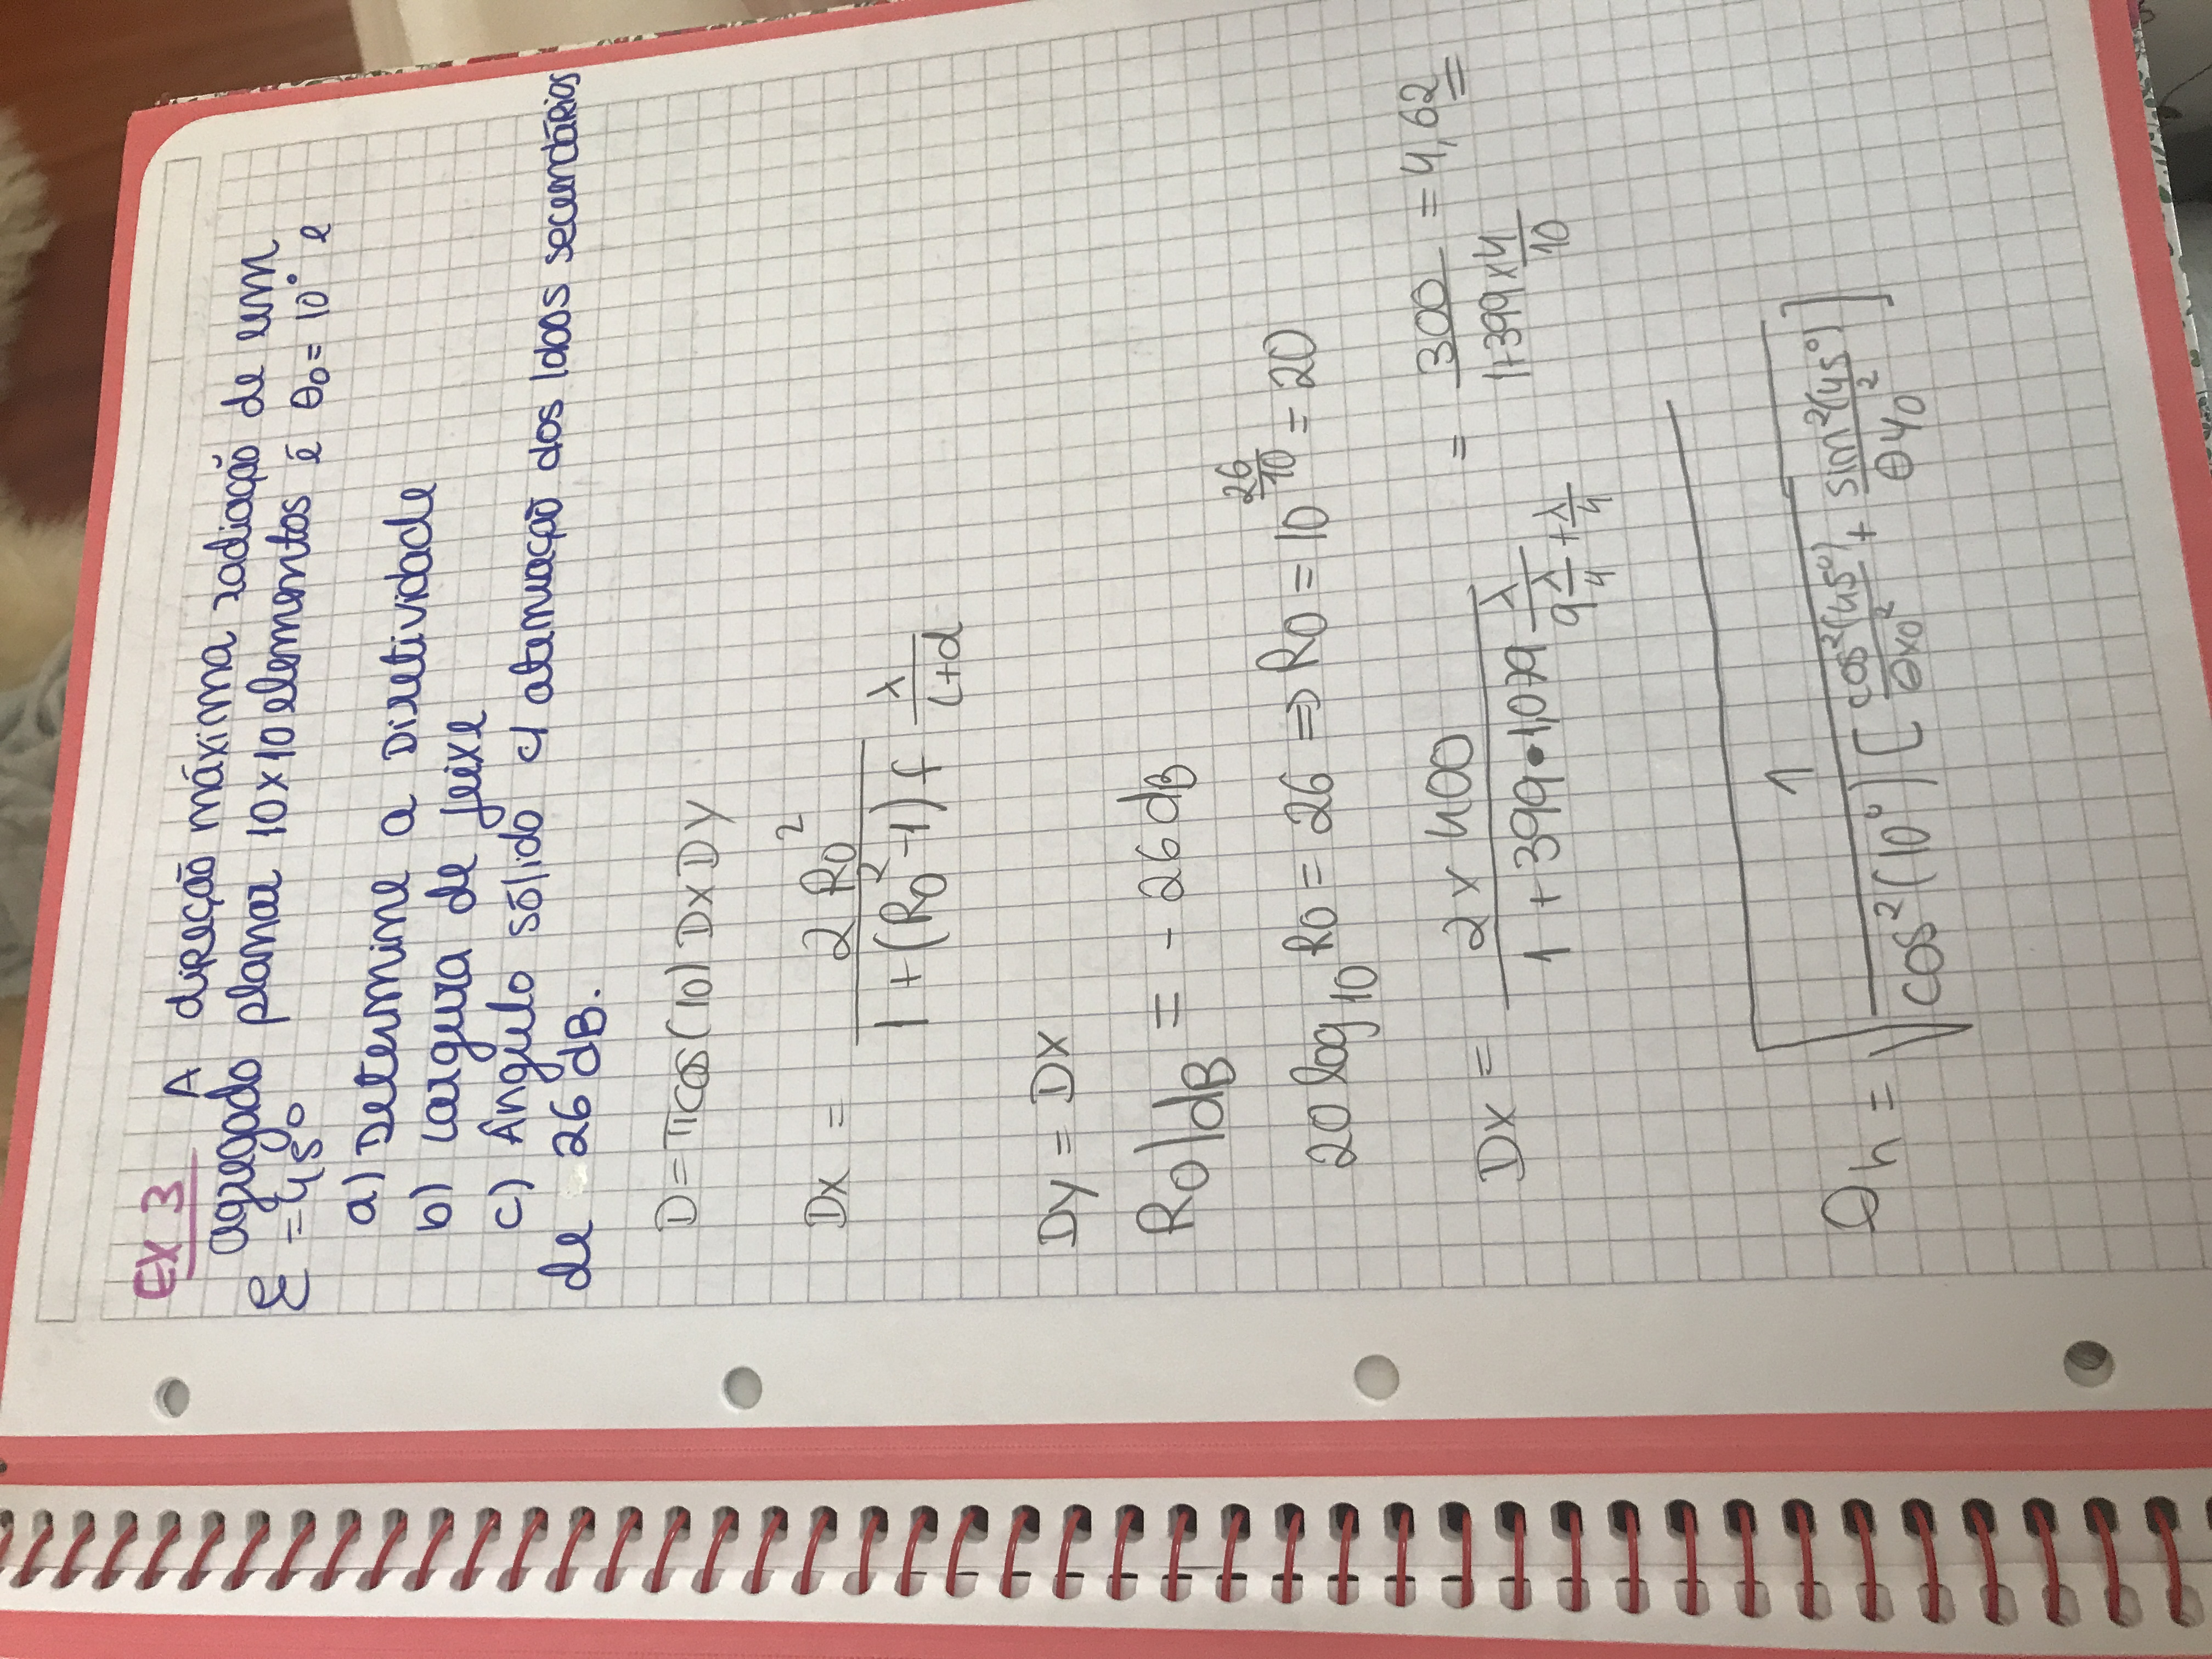 EX 3 A direção máxima radiação de um
agregado planar 10x10 elementos é θ0 = 10° e
Ɛ = 45°
a) Determine a Diretividade
b) Largura de feixe
c) Ângulo sólido c/ atenuação dos lobos secundários
de 26 dB.
D = π cos(10) Dx Dy
Dx = 2 R0² / 1 + (R0² - 1) f λ/(L+d)
Dy = Dx
R0|dB = - 26 dB
20 log10 R0 = 26 ⇒ R0 = 10^(26/10) = 20
Dx = 2 x 400 / 1 + 399 • 1,079 λ/(9 λ/4 + λ/4) = 300 / 1+399 x 4/10 = 4,62
θh = √ 1 / cos²(10°) [ cos²(45°)/θx0² + sin²(45°)/θy0² ]